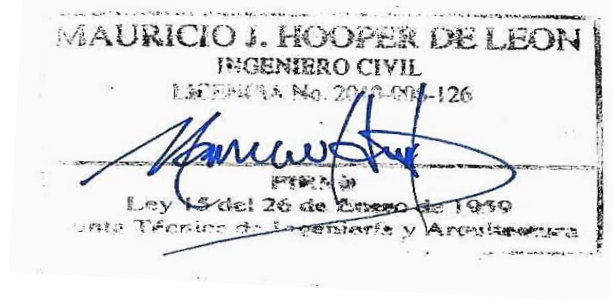 MAURICIO J. HOOPER DE LEON
INGENIERO CIVIL
LICENCIA No. 2010-006-126
FIRMA
Ley 15 del 26 de Enero de 1959
Junta Técnica de Ingeniería y Arquitectura